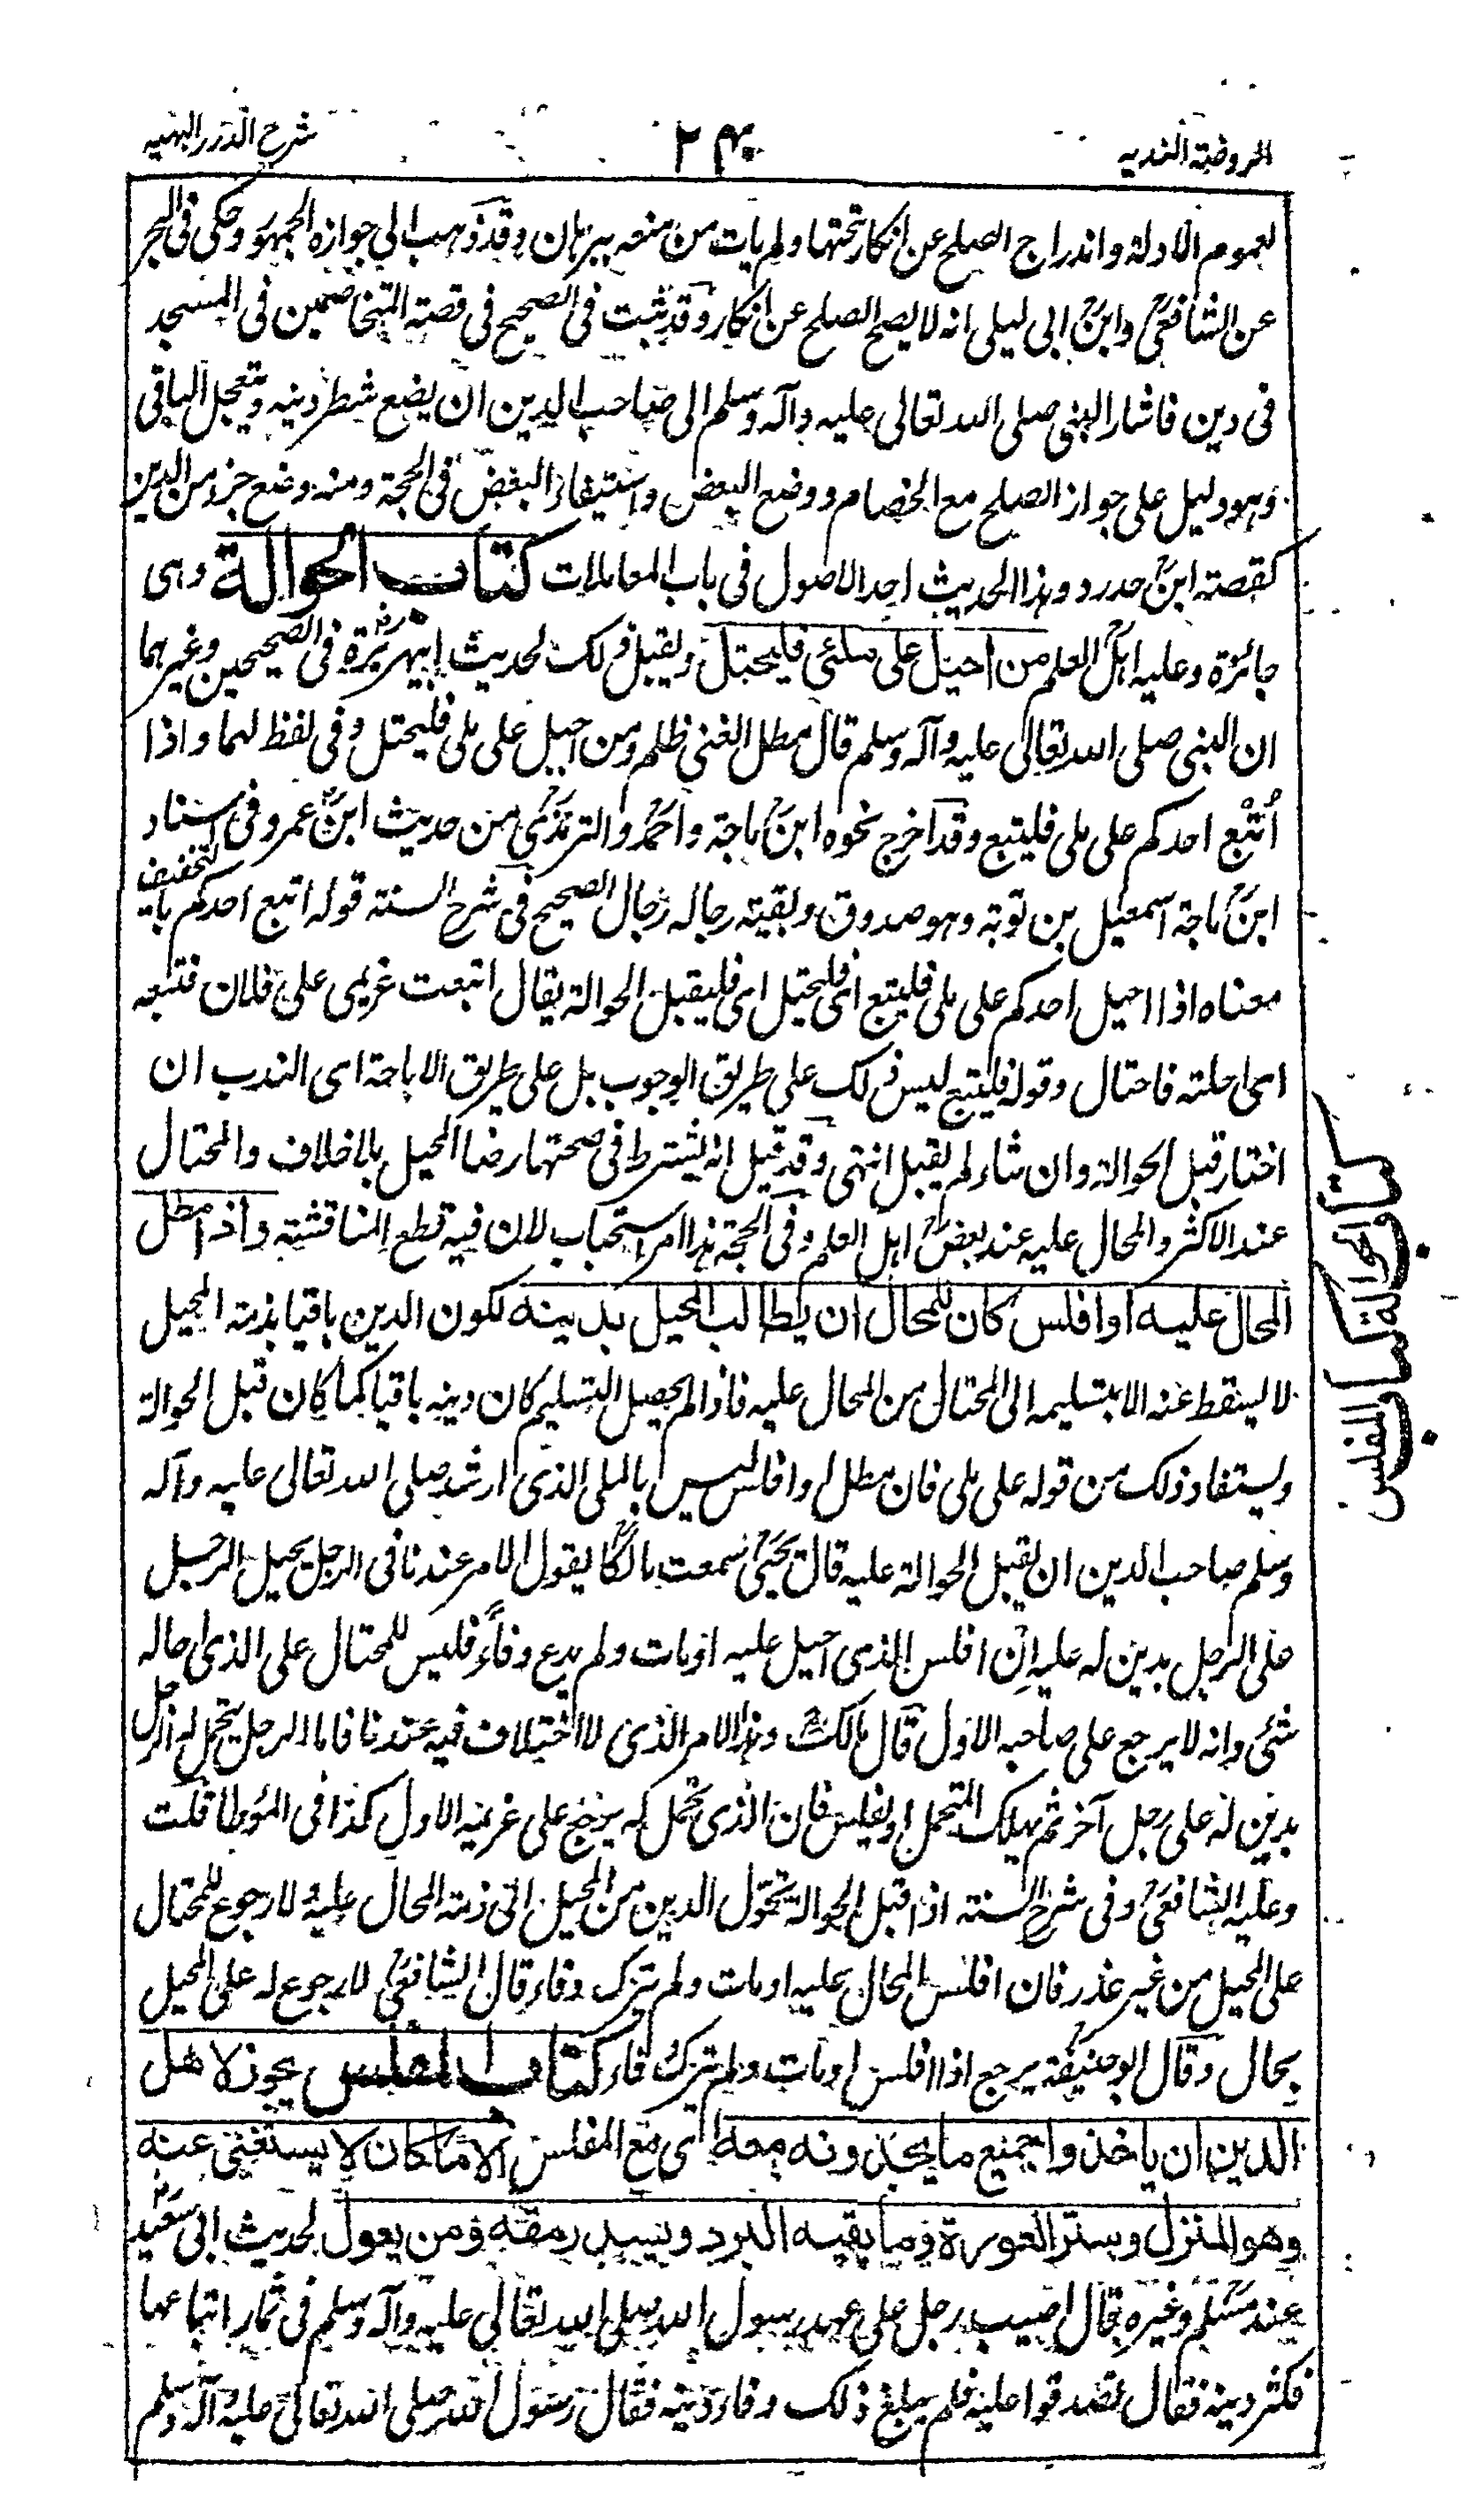 الروضة الندية
٢٤٠
شرح الدرر البهية
لعموم الادلة واندراج الصلح عن انكار تحتها ولم يات من منعه ببرهان وقد ذهب الى جوازه الجمهور وحكى فى البحر
عن الشافعى وابن ابى ليلى انه لا يصح الصلح عن انكار وقد ثبت فى الصحيح فى قصة المتخاصمين فى المسجد
فى دين فاشار النبى صلى الله تعالى عليه وآله وسلم الى صاحب الدين ان يضع شطر دينه ويتعجل الباقى
وهو دليل على جواز الصلح مع الخصام ووضع البعض واستيفاء البعض فى الحجة ومنه وضع جزء من الدين
كقصة ابن حدرد وهذا الحديث احد الاصول فى باب المعاملات كتاب الحوالة وهى
جائزة وعليه اهل العلم من احيل على ملئى فليحتل ويقبل ذلك لحديث ابيهريرة رض فى الصحيحين وغيرهما
ان النبى صلى الله تعالى عليه وآله وسلم قال مطل الغنى ظلم ومن احيل على ملى فليحتل وفى لفظ لهما واذا
اُتْبع احدكم على ملى فليتبع وقد اخرج نحوه ابن ماجة واحمد والترمذى من حديث ابن عمر وفى اسناد
ابن ماجة اسمعيل بن توبة وهو صدوق وبقيته رجاله رجال الصحيح فى شرح السنة قوله اتبع احدكم بالتخفيف
معناه اذا احيل احدكم على ملى فليتبع اى فليحتل اى فليقبل الحوالة يقال اتبعت غريمى على فلان فتبعه
اى احلته فاحتال وقوله فليتبع ليس ذلك على طريق الوجوب بل على طريق الاباحة اى الندب ان
اختار قبل الحوالة وان شاء لم يقبل انتهى وقد قيل انه يشترط فى صحتها رضا المحيل بلا خلاف والمحتال
عند الاكثر والمحال عليه عند بعض اهل العلم وفى الحجة هذا امر استحباب لان فيه قطع المناقشة واذا مطل
المحال عليه او افلس كان للمحال ان يطالب المحيل بدينه لكون الدين باقيا بذمة المحيل
لا يسقط عنه الا بتسليمه الى المحتال من المحال عليه فاذا لم يحصل التسليم كان دينه باقيا كما كان قبل الحوالة
ويستفاد ذلك من قوله على ملى فان مطل او افلس ليس بالملى الذى ارشد صلى الله تعالى عليه وآله
وسلم صاحب الدين ان يقبل الحوالة عليه قال يحيى سمعت مالكا يقول الامر عندنا فى الرجل يحيل الرجل
على الرجل بدين له عليه ان افلس الذى احيل عليه او مات ولم يدع وفاءً فليس للمحتال على الذى احاله
شئ وانه لا يرجع على صاحبه الاول قال مالك وهذا الامر الذى لا اختلاف فيه عندنا فاما الرجل يتحمل له الرجل
بدين له على رجل آخر ثم يهلك المتحمل او يفلس فان الذى تحمل له يرجع على غريمه الاول كذا فى المؤطا قلت
وعليه الشافعى وفى شرح السنة اذا قبل الحوالة تحول الدين من المحيل الى ذمة المحال عليه ولا رجوع للمحتال
على المحيل من غير عذر فان افلس المحال عليه او مات ولم يترك وفاء قال الشافعى لا رجوع له على المحيل
بحال وقال ابو حنيفة يرجع اذا افلس او مات ولم يترك وفاء كتاب المفلس يجوز لاهل
الدين ان ياخذوا جميع ما يجدونه معه اى مع المفلس الا ما كان لا يستغنى عنه
وهو المنزل وستر العورة وما يقيه البرد ويسد رمقه ومن يعول لحديث ابى سعيد
عند مسلم وغيره قال اصيب رجل على عهد رسول الله صلى الله تعالى عليه وآله وسلم فى ثمار ابتاعها
فكثر دينه فقال تصدقوا عليه فلم يبلغ ذلك وفاء دينه فقال رسول الله صلى الله تعالى عليه وآله وسلم
كتاب الحوالة
كتاب المفلس